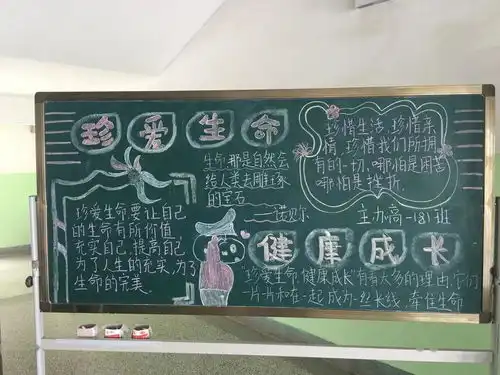 珍爱生命
生命,那是自然会
给人类去雕琢
的宝石
——诺贝尔
珍惜生活,珍惜亲
情,珍惜我们所拥
有的一切,哪怕是困苦
哪怕是挫折.
主办:高一(8)班
珍爱生命要让自己
的生命有所价值
充实自己,提高自己
为了人生的充实,为了
生命的完美
健康成长
珍爱生命,健康成长有着太多的理由,它们
一片片和在一起,成为一丝长线,牵住生命